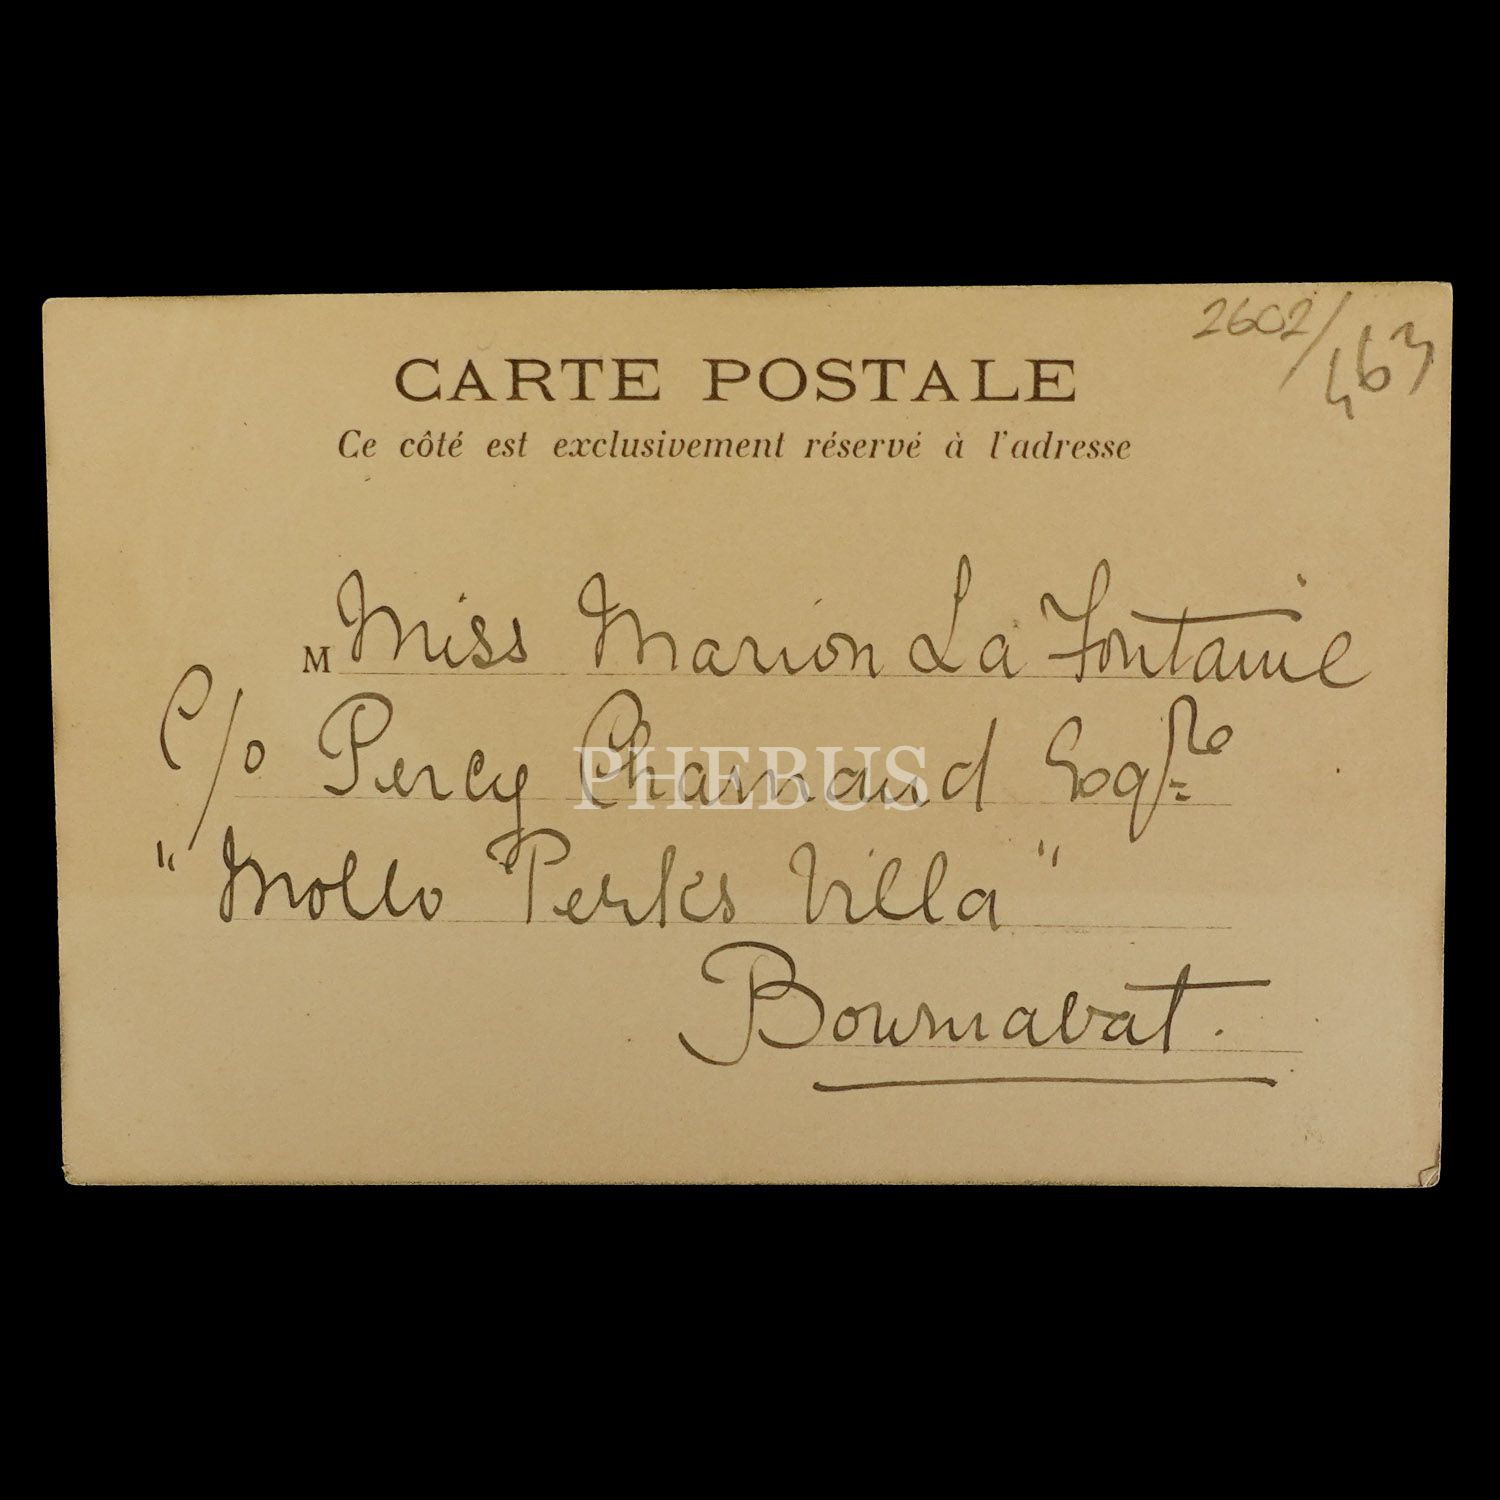 2602/463
CARTE POSTALE
Ce côté est exclusivement réservé à l'adresse
M Miss Marion La Fontaine
C/o Percy Charnaud Esqre
PHEBUS
"Mollo Perks Villa"
Bournabat.